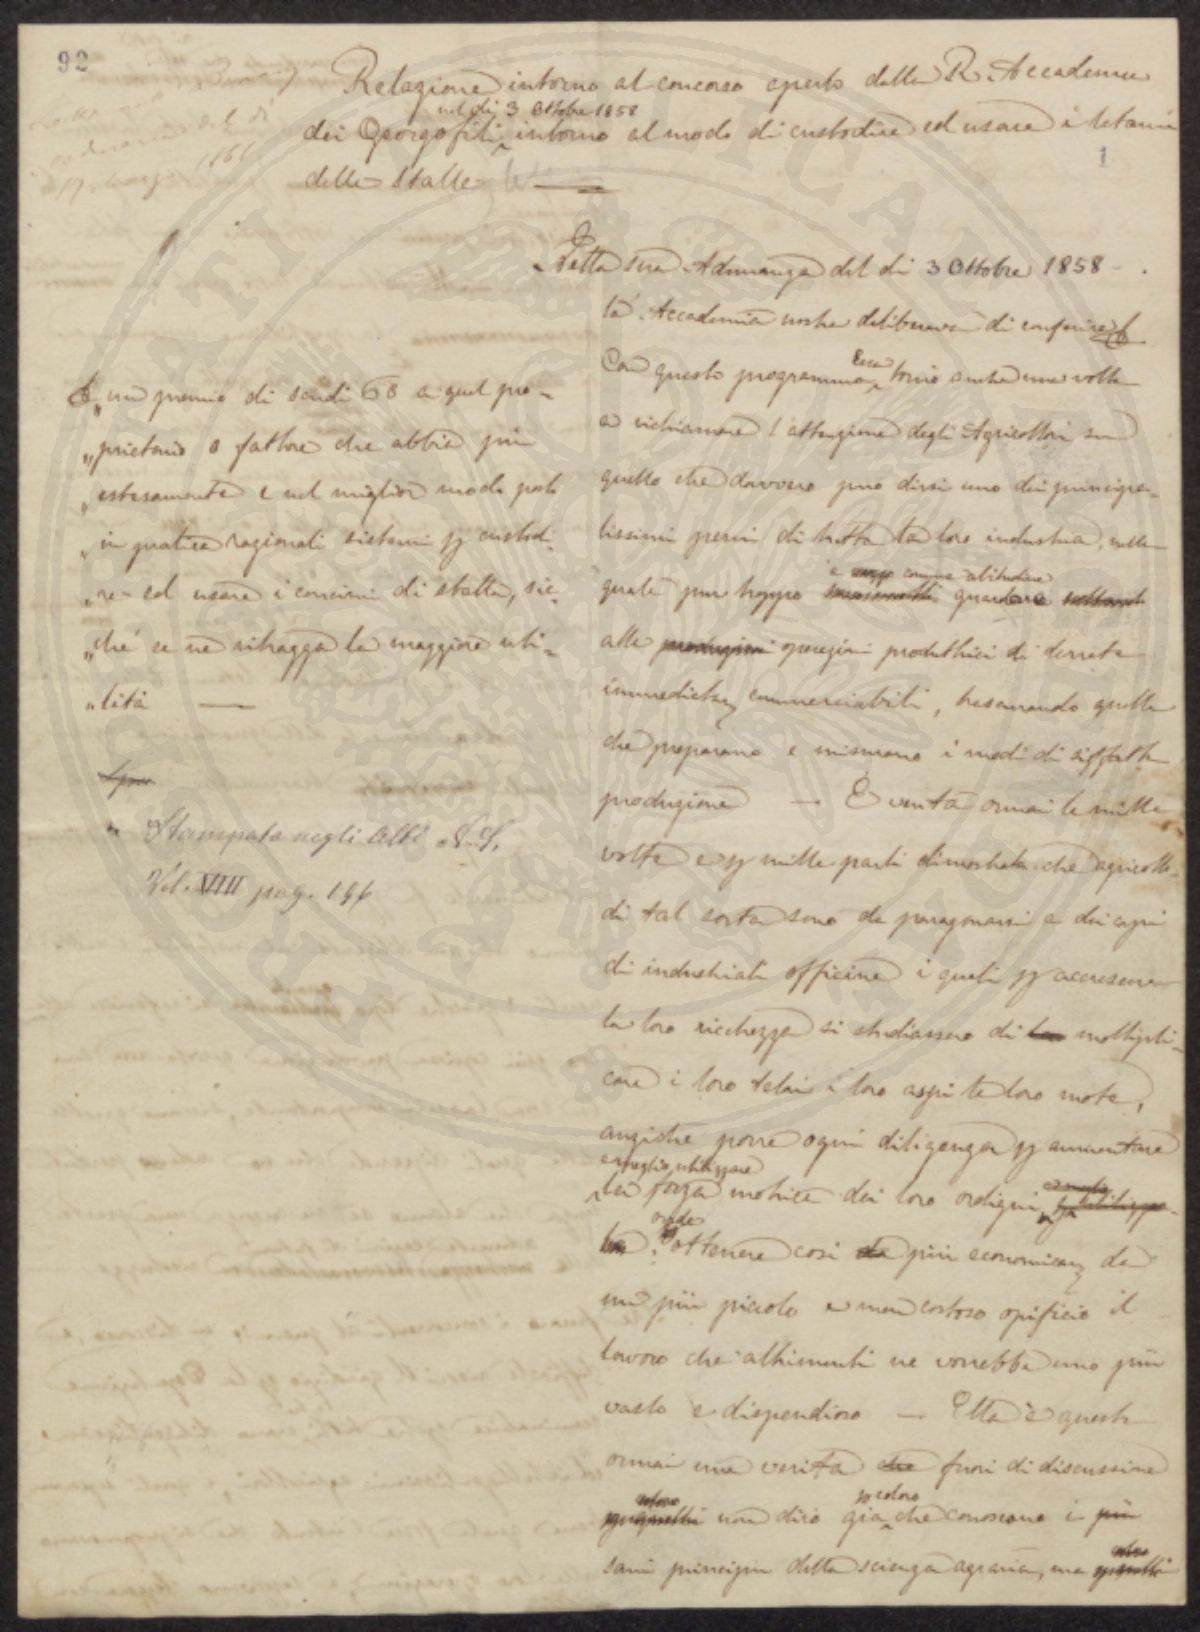 92
Relazione intorno al concorso aperto dalla R. Accademia
nel dì 3 Ottobre 1858
dei Georgofili intorno al modo di custodire ed usare i letami
1
delle Stalle
Nella sua Adunanza del dì 3 Ottobre 1858
la Accademia nostra deliberava di conferire
Con questo programma Essa tornò anche una volta
a richiamare l'attenzione degli Agricoltori su
quello che davvero può dirsi uno dei principa-
lissimi perni di tutta la loro industria, nella
è comune abitudine
quale pur troppo guardare soltanto
alle produzioni operazioni produttrici di derrate
immediatam commerciabili, trascurando quelle
che preparano e misurano i modi di siffatta
produzione — È verità ormai le mille
volte e p mille parti dimostrata che agricolto-
di tal sorta sono da paragonarsi a dei capi
di industriali officine i quali p accrescere
la loro ricchezza si studiassero di moltipli-
care i loro telai i loro aspi le loro rote,
anziché porre ogni diligenza p aumentare
e meglio utilizzare
la forza motrice dei loro ordigni
onde
ottenere così più economicam da
un più piccolo e men costoso opificio il
lavoro che altrimenti ne vorrebbe uno più
vasto e dispendioso — Ella è questa
ormai una verità che fuori di discussione
p coloro
non dirò già che conoscono i più
sani principii della scienza agraria, ma
È un premio di scudi 60 a quel pro-
„prietario o fattore che abbia più
„estesamente e nel miglior modo posto
„in pratica razionali sistemi p custodi-
„re ed usare i concimi di stalla, sic-
„ché se ne ritragga la maggiore uti-
„lità —
Stampata negli Atti N. S.
Vol. VIII pag. 146